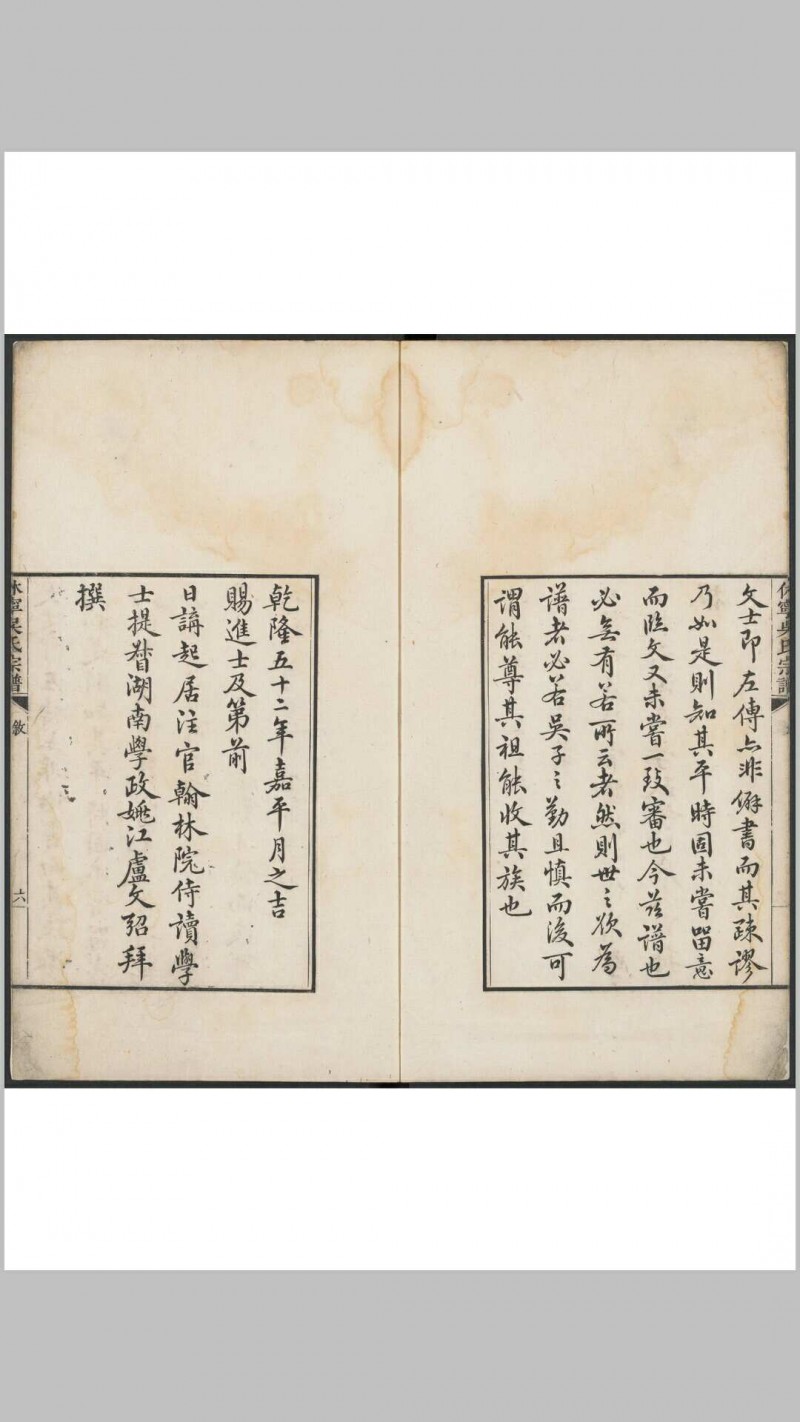 文士即左傳亦非僻書而其疎謬
乃如是則知其平時固未嘗留意
而臨文又未嘗一致審也今茲譜也
必無有若所云者然則世之欲為
譜者必若吳子之勤且慎而後可
謂能尊其祖能收其族也
休寧吳氏宗譜
乾隆五十二年嘉平月之吉
賜進士及第前
日講起居注官翰林院侍讀學
士提督湖南學政姚江盧文弨拜
撰
休寧吳氏宗譜
敘
六